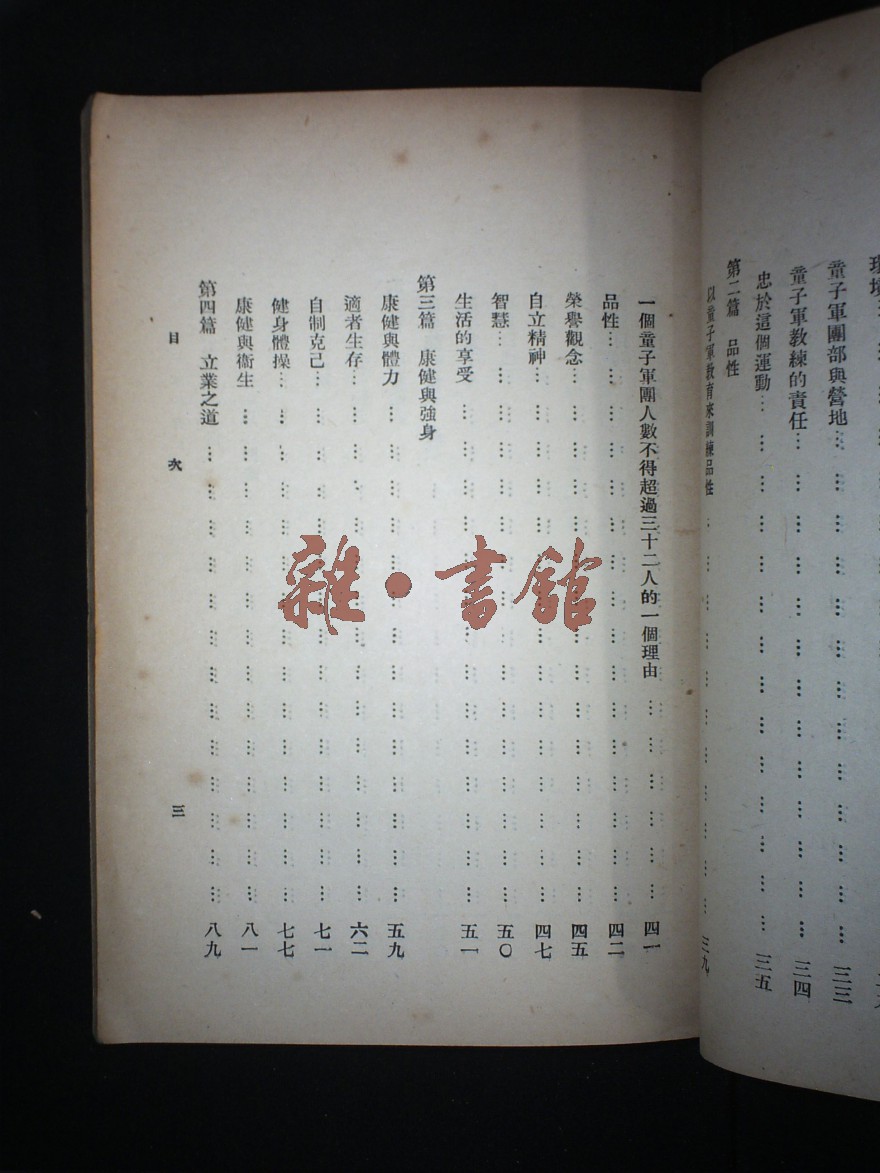 童子軍團部與營地… … … … … … … … … … … … … … 三三
童子軍教練的責任… … … … … … … … … … … … … … 三四
忠於這個運動… … … … … … … … … … … … … … … 三五
第二篇 品性
以童子軍教育來訓練品性 … … … … … … … … … … … 三九
一個童子軍團人數不得超過三十二人的一個理由 … … … … … … 四一
品性… … … … … … … … … … … … … … … … 四二
榮譽觀念… … … … … … … … … … … … … … … 四五
自立精神… … … … … … … … … … … … … … … 四七
智慧… … … … … … … … … … … … … … … … 五〇
生活的享受 … … … … … … … … … … … … … … 五一
第三篇 康健與強身
康健與體力 … … … … … … … … … … … … … … 五九
適者生存… … … … … … … … … … … … … … … 六二
自制克己… … … … … … … … … … … … … … … 七一
健身體操… … … … … … … … … … … … … … … 七七
康健與衞生 … … … … … … … … … … … … … … 八一
第四篇 立業之道 … … … … … … … … … … … … … 八九
目 次 三
雜·書館